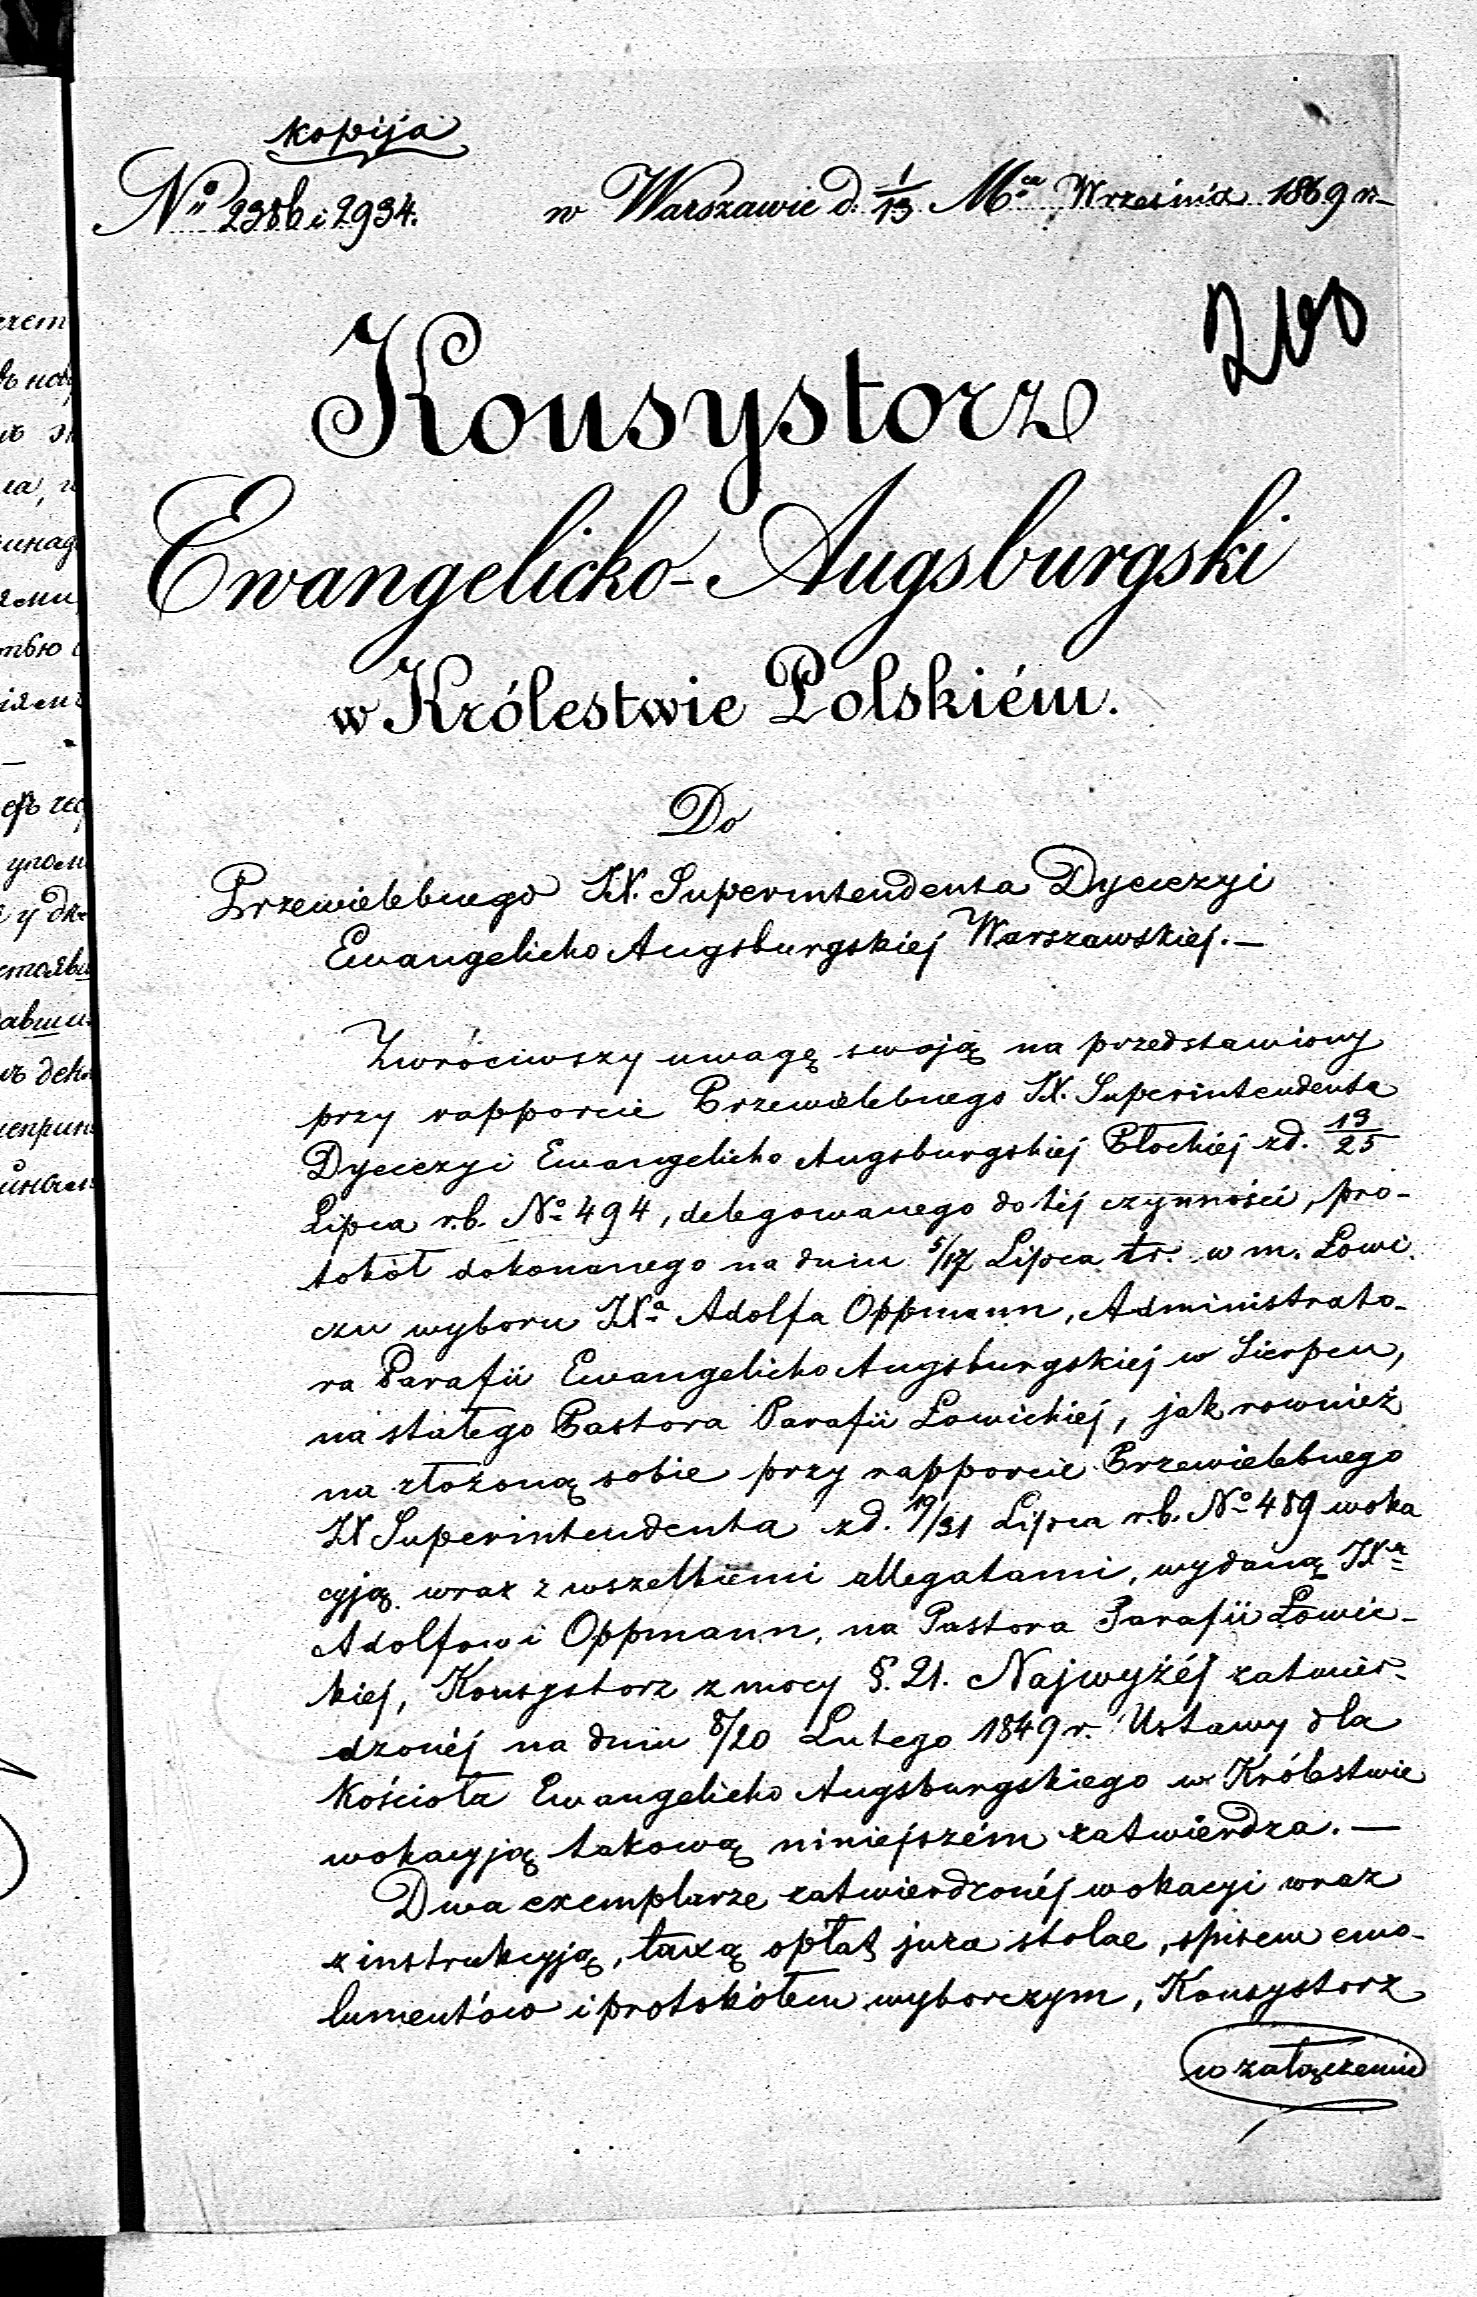 kopija
№ 2386 i 2934. w Warszawie d. 1/13 Mca Września 1869 r.
200
Konsystorz
Ewangelicko-Augsburgski
w Królestwie Polskiém.
Do
Przewielebnego JX. Superintendenta Dyecezyi
Ewangelicko Augsburgskiej Warszawskiej.—
Zwróciwszy uwagę swoją na przedstawiony
przy rapporcie Przewielebnego JX. Superintendenta
Dyecezyi Ewangelicko Augsburgskiej Płockiej z d. 13/25
Lipca r.b. № 494, delegowanego do téj czynności, pro-
tokół dokonanego na dniu 5/17 Lipca t.r. w m. Łowi-
czu wyboru JXa Adolfa Oppmann, Administrato-
ra Parafii Ewangelicko Augsburgskiej w Sierpcu,
na stałego Pastora Parafii Łowickiej, jak rownież
na złożoną sobie przy rapporcie Przewielebnego
JX Superintendenta z d. 19/31 Lipca r.b. № 489 woka
cyją wraz z wszelkiemi allegatami, wydaną JXu
Adolfowi Oppmann, na Pastora Parafii Łowic-
kiej, Konsystorz z mocy §. 21. Najwyżéj zatwier-
dzonéj na dniu 8/20 Lutego 1849 r. Ustawy dla
Kościoła Ewangelicko Augsburgskiego w Królestwie
wokacyją takową niniejszém zatwierdza.—
Dwa exemplarze zatwierdzonéj wokacyi wraz
z instrukcyją, taxą opłat jura stolae, spisem emo-
lumentów i protokółem wyborczym, Konsystorz
w załączeniu